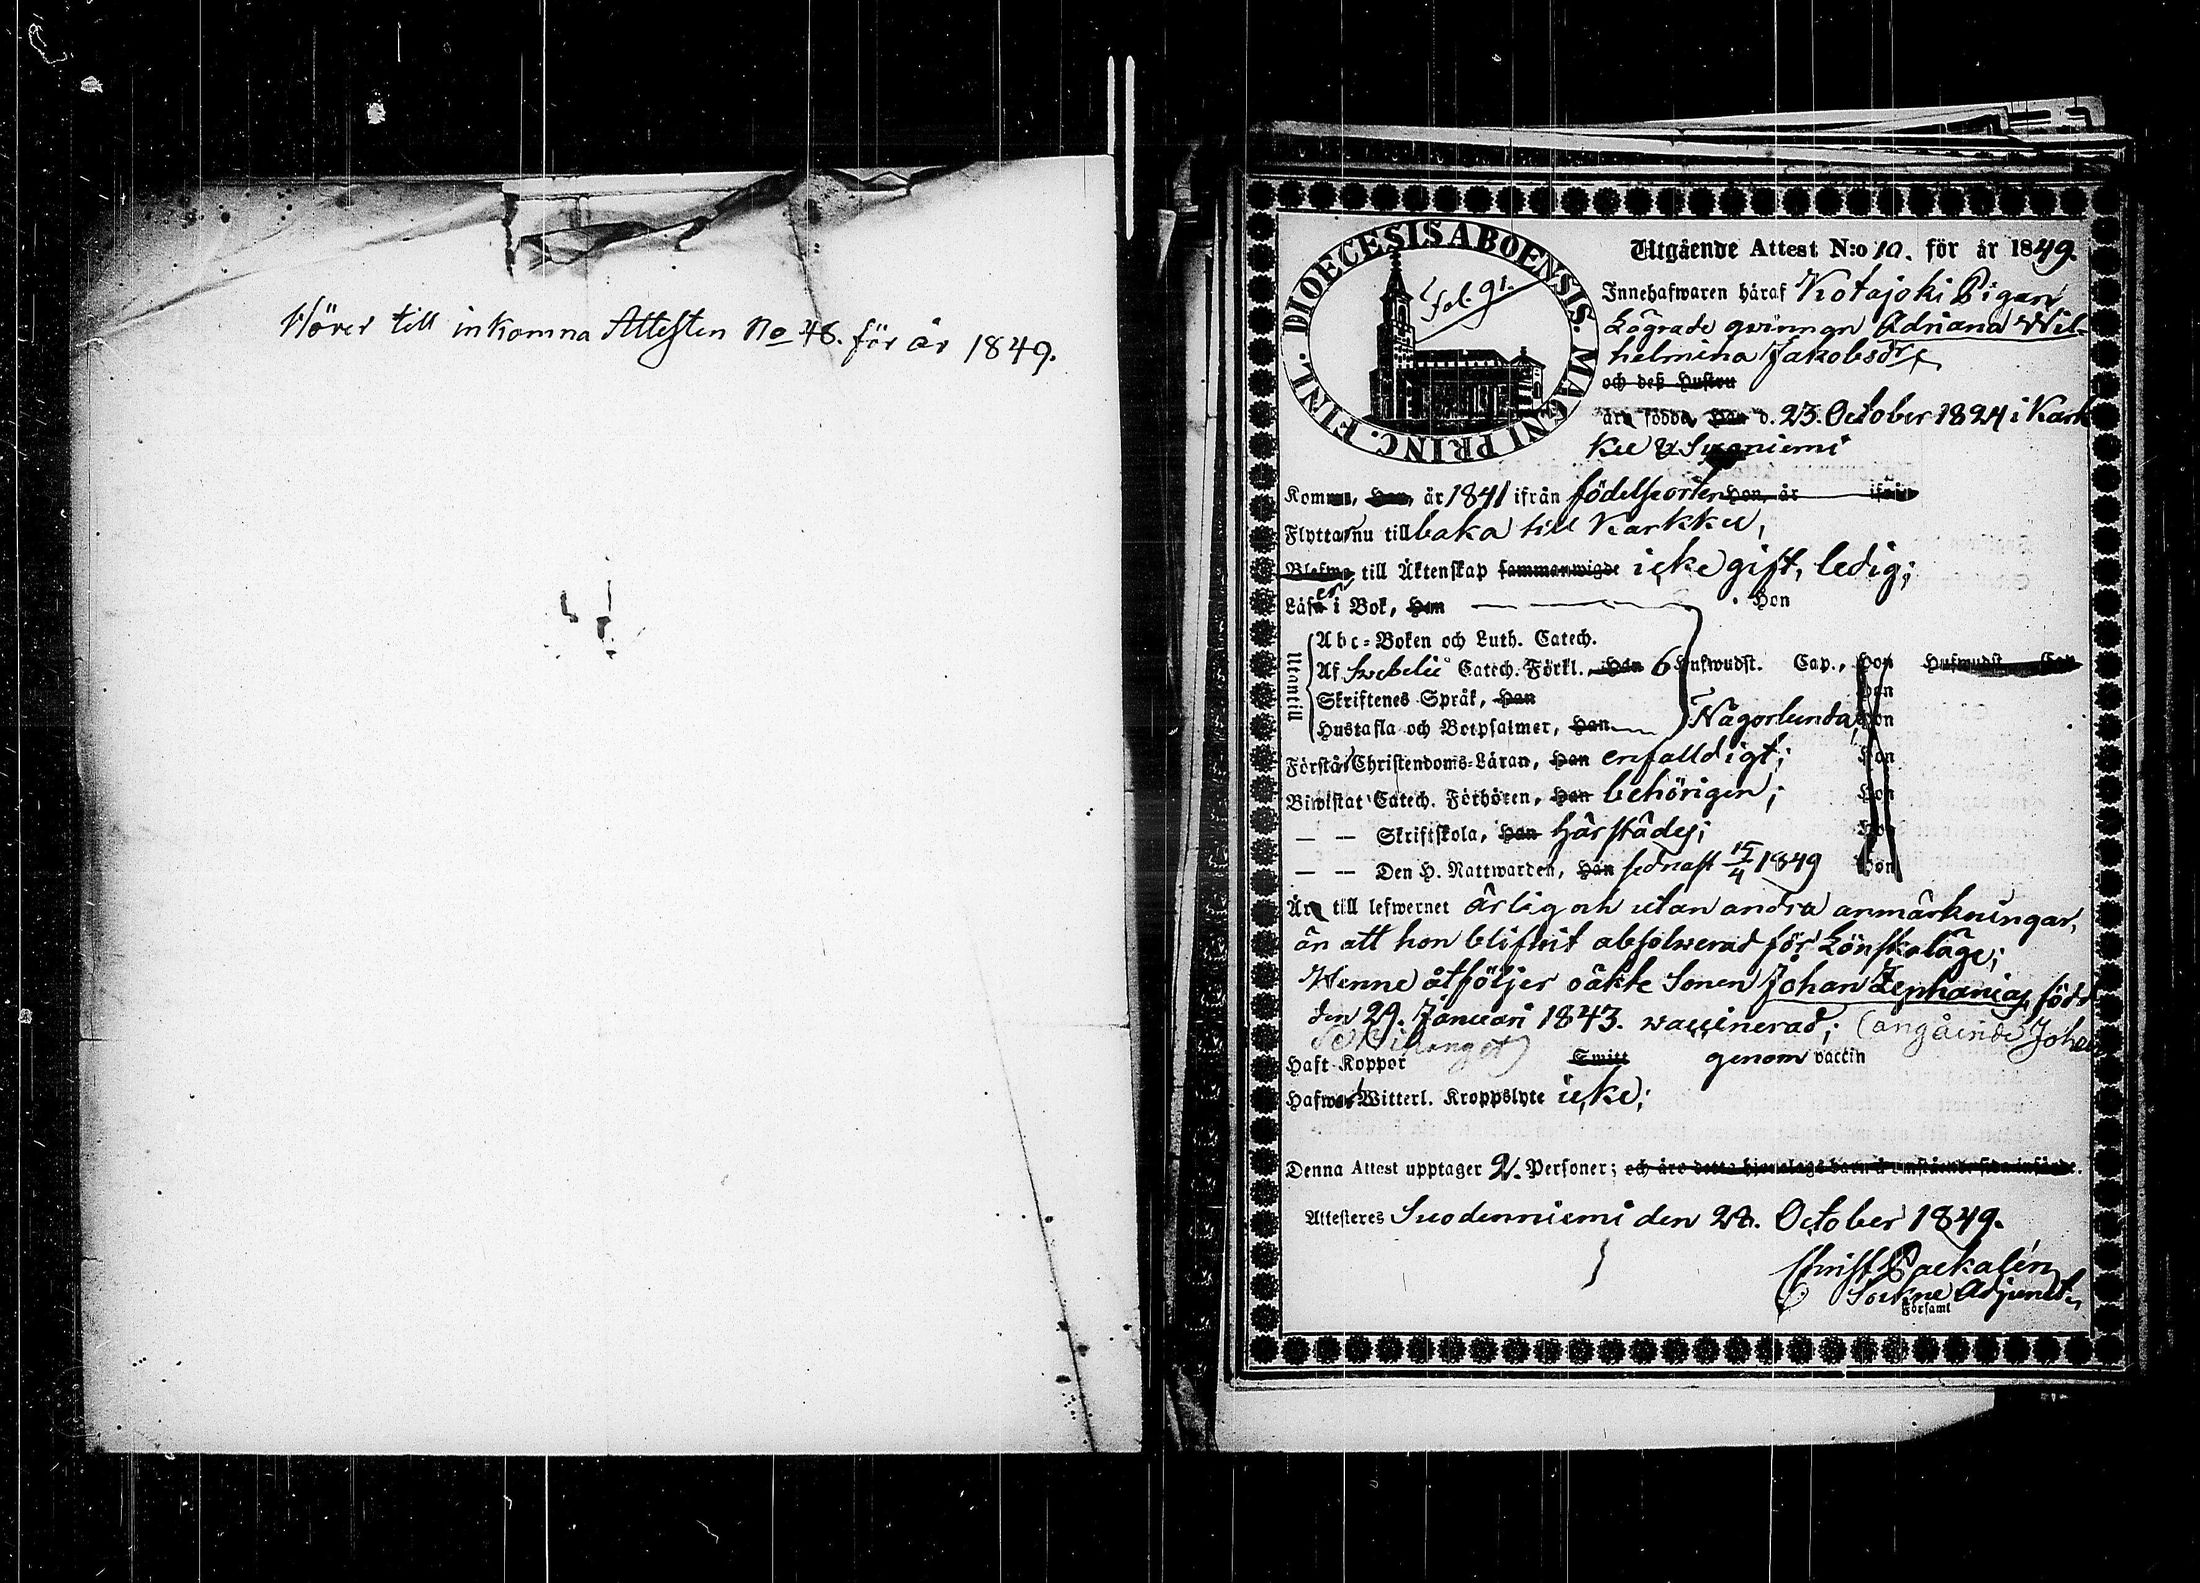 Hörer till inkomna Attesten No 48. för år 1849.
DIOECESIS ABOENSIS. MAGNI PRINC. FINL.
fol. 91.
Utgående Attest N:o 10. för år 1849.
Innehafwaren häraf Kotajoki Pigan
Lägrade qwinnan Adriana Wil-
helmina Jakobsdr
och deß Hustru
äro födda, Han d. 23. October 1824 i Kark
ku
Komm, Han, år 1841 ifrån födelseorten Hon, år ifrån
Flyttar nu tillbaka till Karkku,
till Äktenskap sammanwigde icke gift, ledig;
Läser i Bok, Han Hon
Utantill
Abc-Boken och Luth. Catech.
Af Swebelii Catech. Förkl. Han 6 Hufwudst. Cap., Hon Hufwudst. Cap
Skriftenes Språk, Han Hon
Hustafla och Botpsalmer, Han Någorlunda, Hon
Förstår Christendoms-Läran, Han enfalldigt; Hon
Biwistat Catech. Förhören, Han behörigen; Hon
— — Skriftskola, Han härstädes; Hon
— — Den H. Nattwarden, Han sednast 15/4 1849 Hon
Är till lefwernet ärlig och utan andra anmärkningar,
än att hon blifwit absolwerad för Lönskaläge;
Henne åtföljer oäkte Sonen Johan Zephanias, född
den 29. Januari 1843. waccinerad; (angående Johan
Haft Koppor Smitt genom vaccin
Hafwer Witterl. Kroppslyte icke;
Denna Attest upptager 2. Personer; och äro detta hjonelags barn å omstående sida införde.
Attesteres Suodenniemi den 29. October 1849.
Christ Packalén
Sockne Adjunct.
Församl